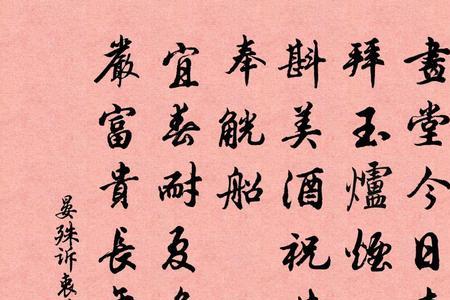 畫堂今日
拜玉爐煙
斟美酒祝
奉觥船
宜春耐夏
嚴富貴長
晏殊訴衷